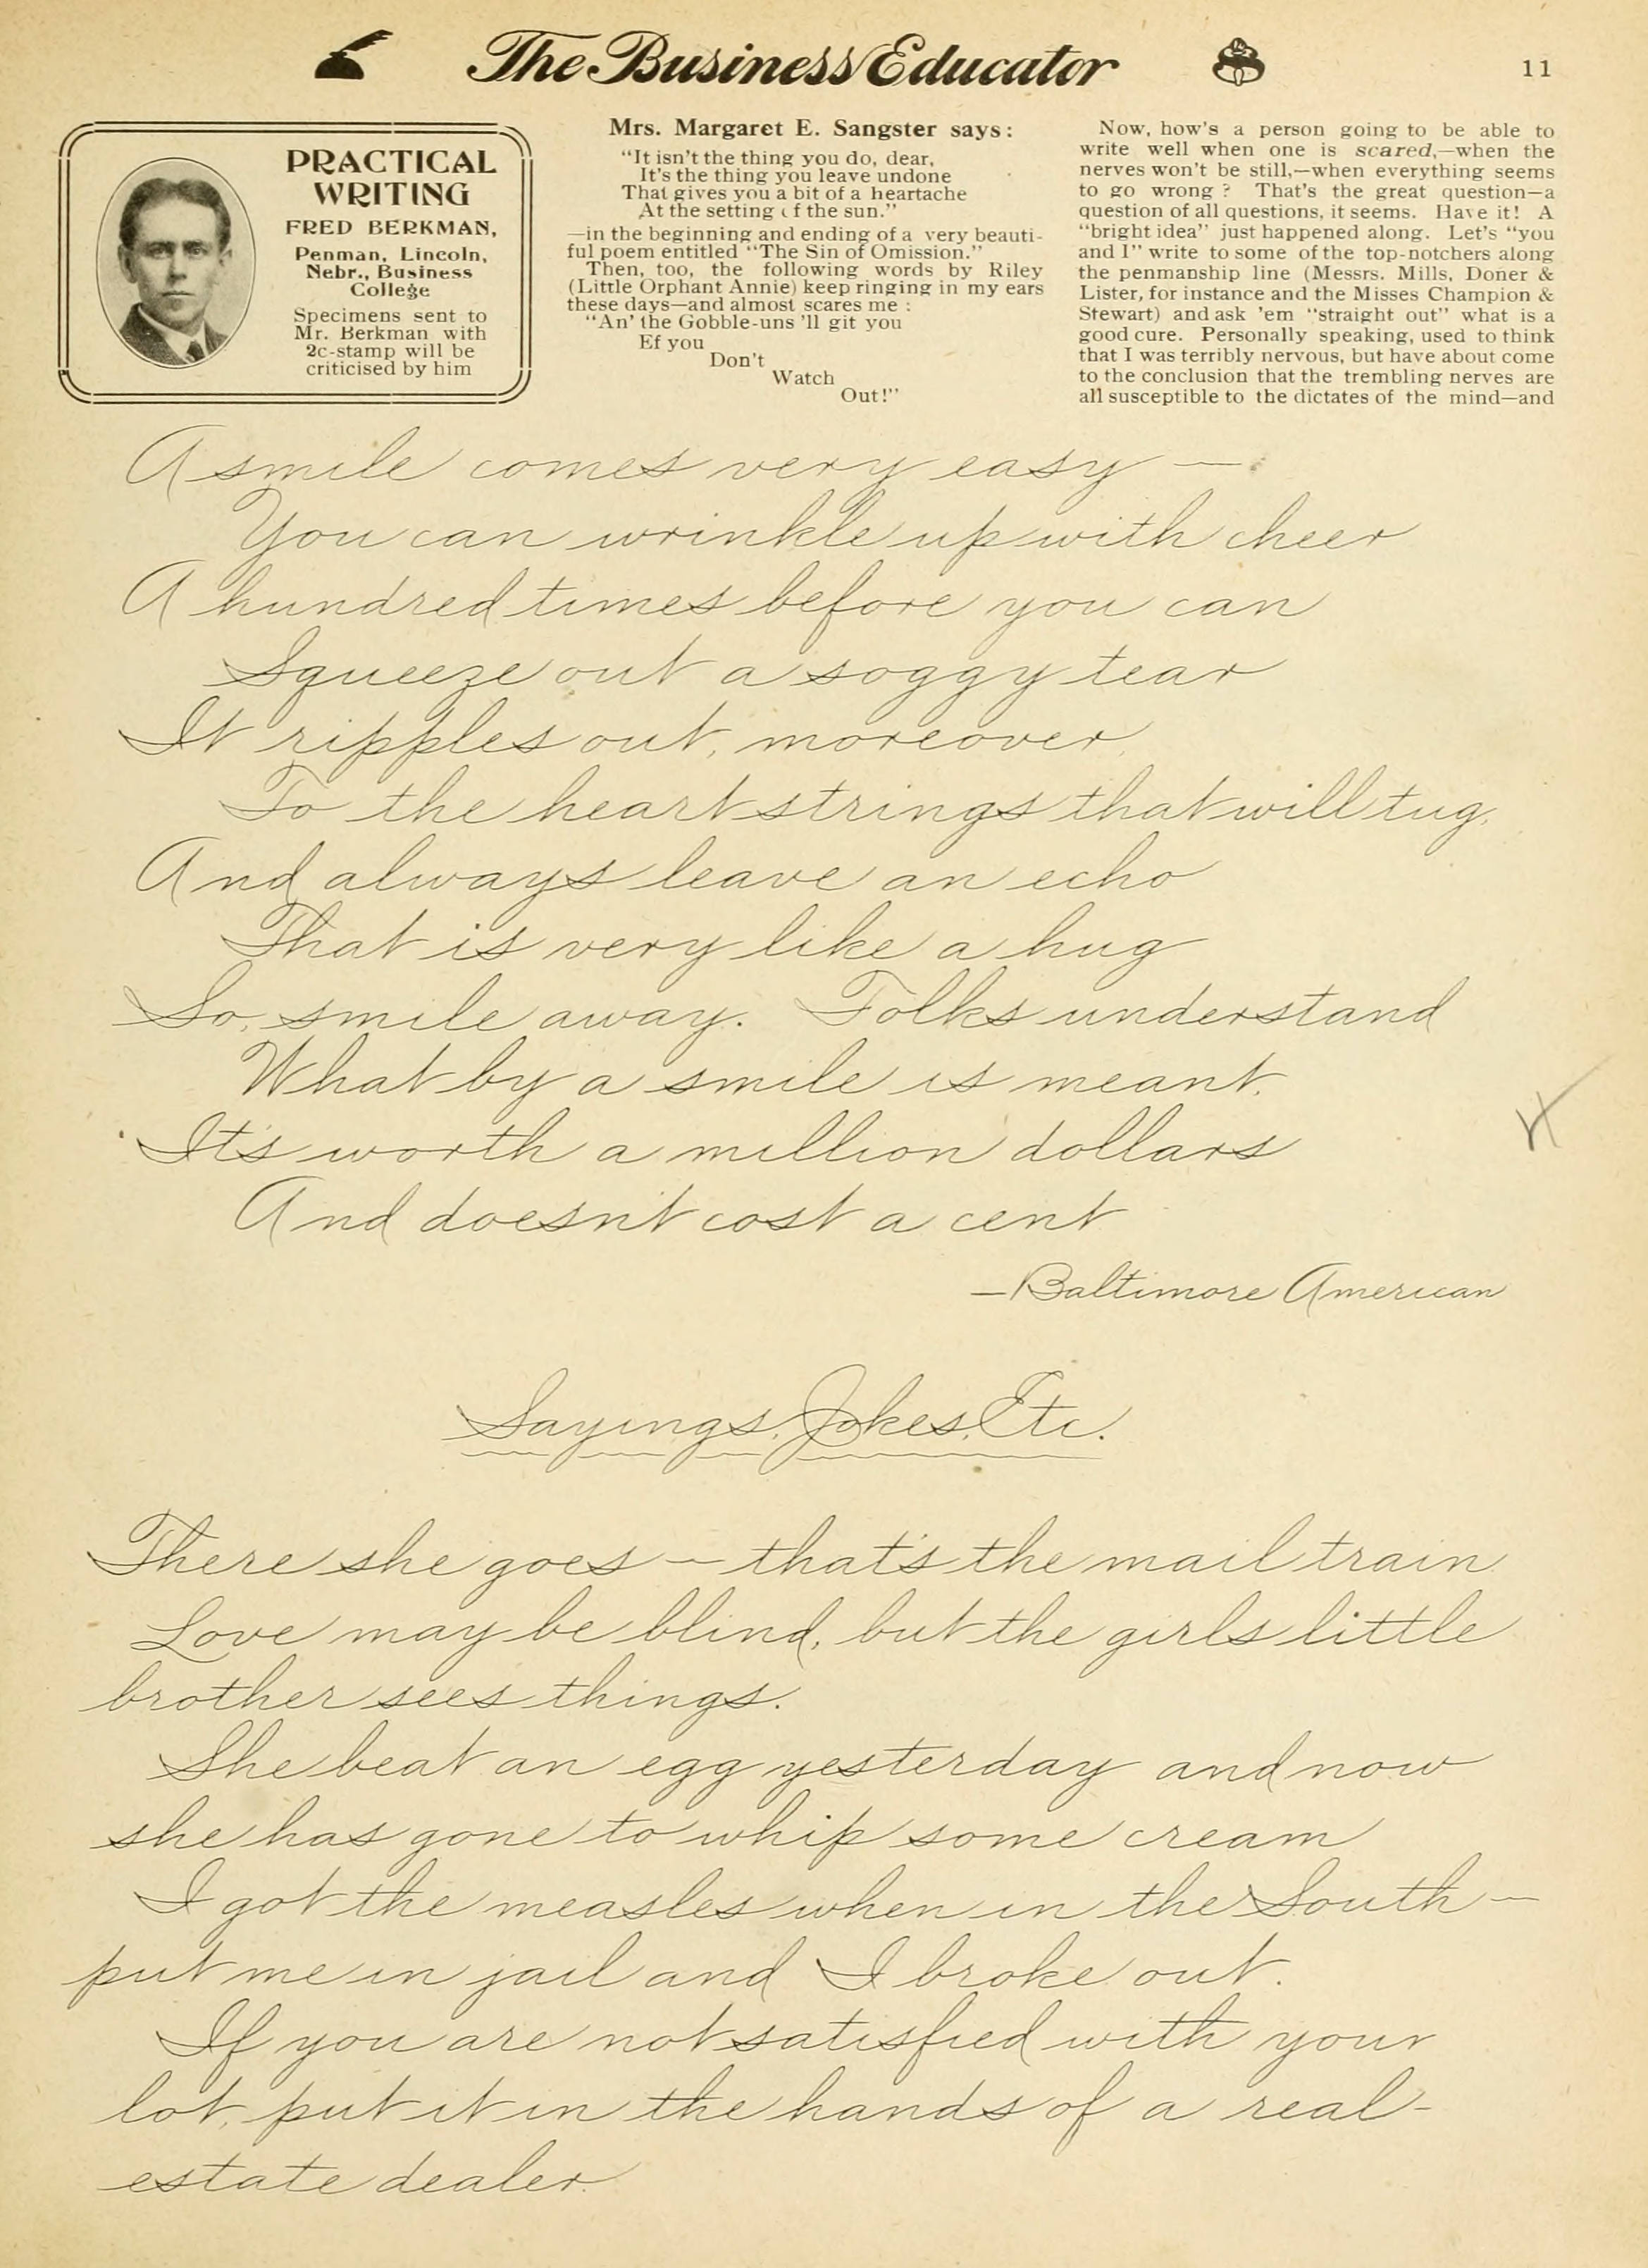 The Business Educator
11
PRACTICAL
WRITING
FRED BERKMAN,
Penman, Lincoln,
Nebr., Business
College
Specimens sent to
Mr. Berkman with
2c-stamp will be
criticised by him
Mrs. Margaret E. Sangster says:
"It isn't the thing you do, dear,
It's the thing you leave undone
That gives you a bit of a heartache
At the setting of the sun."
—in the beginning and ending of a very beauti-
ful poem entitled "The Sin of Omission."
Then, too, the following words by Riley
(Little Orphant Annie) keep ringing in my ears
these days—and almost scares me:
"An' the Gobble-uns 'll git you
Ef you
Don't
Watch
Out!"
Now, how's a person going to be able to
write well when one is scared,—when the
nerves won't be still,—when everything seems
to go wrong? That's the great question—a
question of all questions, it seems. Have it! A
"bright idea" just happened along. Let's "you
and I" write to some of the top-notchers along
the penmanship line (Messrs. Mills, Doner &
Lister, for instance and the Misses Champion &
Stewart) and ask 'em "straight out" what is a
good cure. Personally speaking, used to think
that I was terribly nervous, but have about come
to the conclusion that the trembling nerves are
all susceptible to the dictates of the mind—and
A smile comes very easy —
You can wrinkle up with cheer
A hundred times before you can
Squeeze out a soggy tear
It ripples out, moreover,
To the heart strings that will tug,
And always leave an echo
That is very like a hug
So, smile away. Folks understand
What by a smile is meant,
It's worth a million dollars
And doesn't cost a cent
—Baltimore American
Sayings, Jokes, Etc.
There she goes — that's the mail train
Love may be blind, but the girls little
brother sees things.
She beat an egg yesterday and now
she has gone to whip some cream
I got the measles when in the South —
put me in jail and I broke out.
If you are not satisfied with your
lot, put it in the hands of a real-
estate dealer.